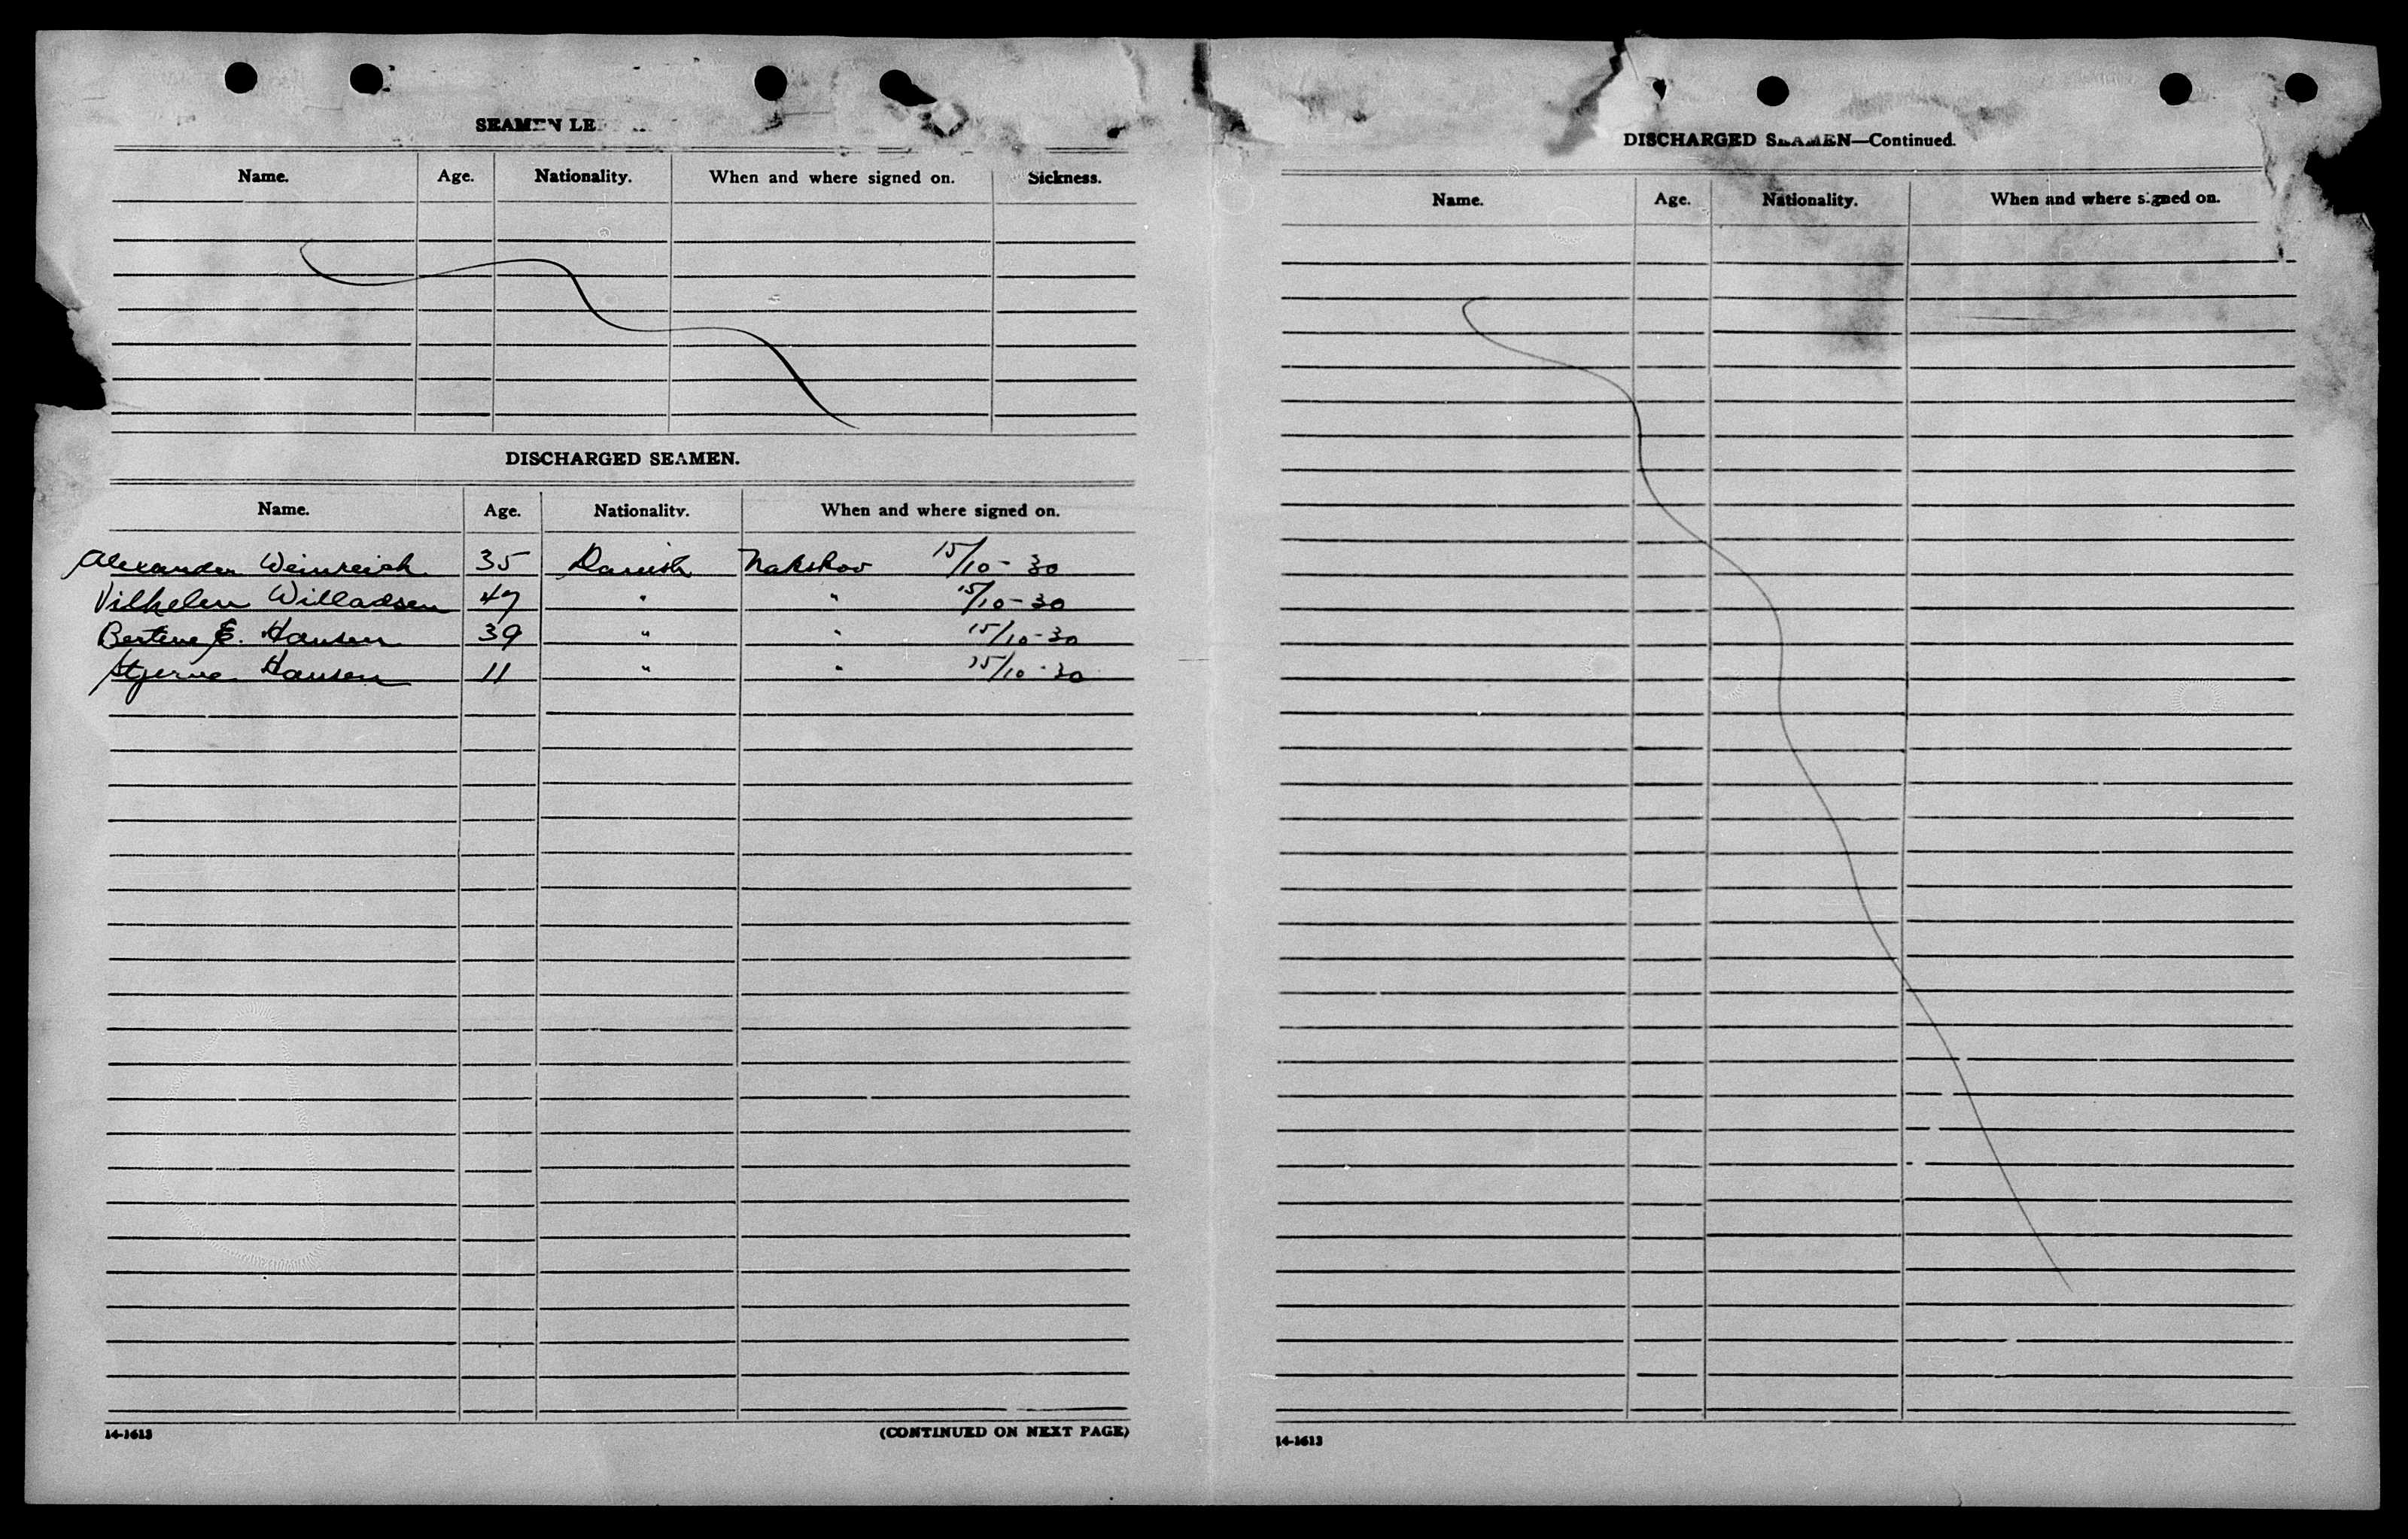 SEAMEN LE
Name. Age. Nationality. When and where signed on. Sickness.
DISCHARGED SEAMEN.
Name. Age. Nationality. When and where signed on.
Alexander Weinreich 35 Danish Nakskov 15/10-30
Vilhelm Willadsen 47 " " 15/10-30
Bertine E. Hansen 39 " " 15/10-30
Stjerne Hansen 11 " " 15/10-30
14-1613 (CONTINUED ON NEXT PAGE)
DISCHARGED SEAMEN—Continued.
Name. Age. Nationality. When and where signed on.
14-1613